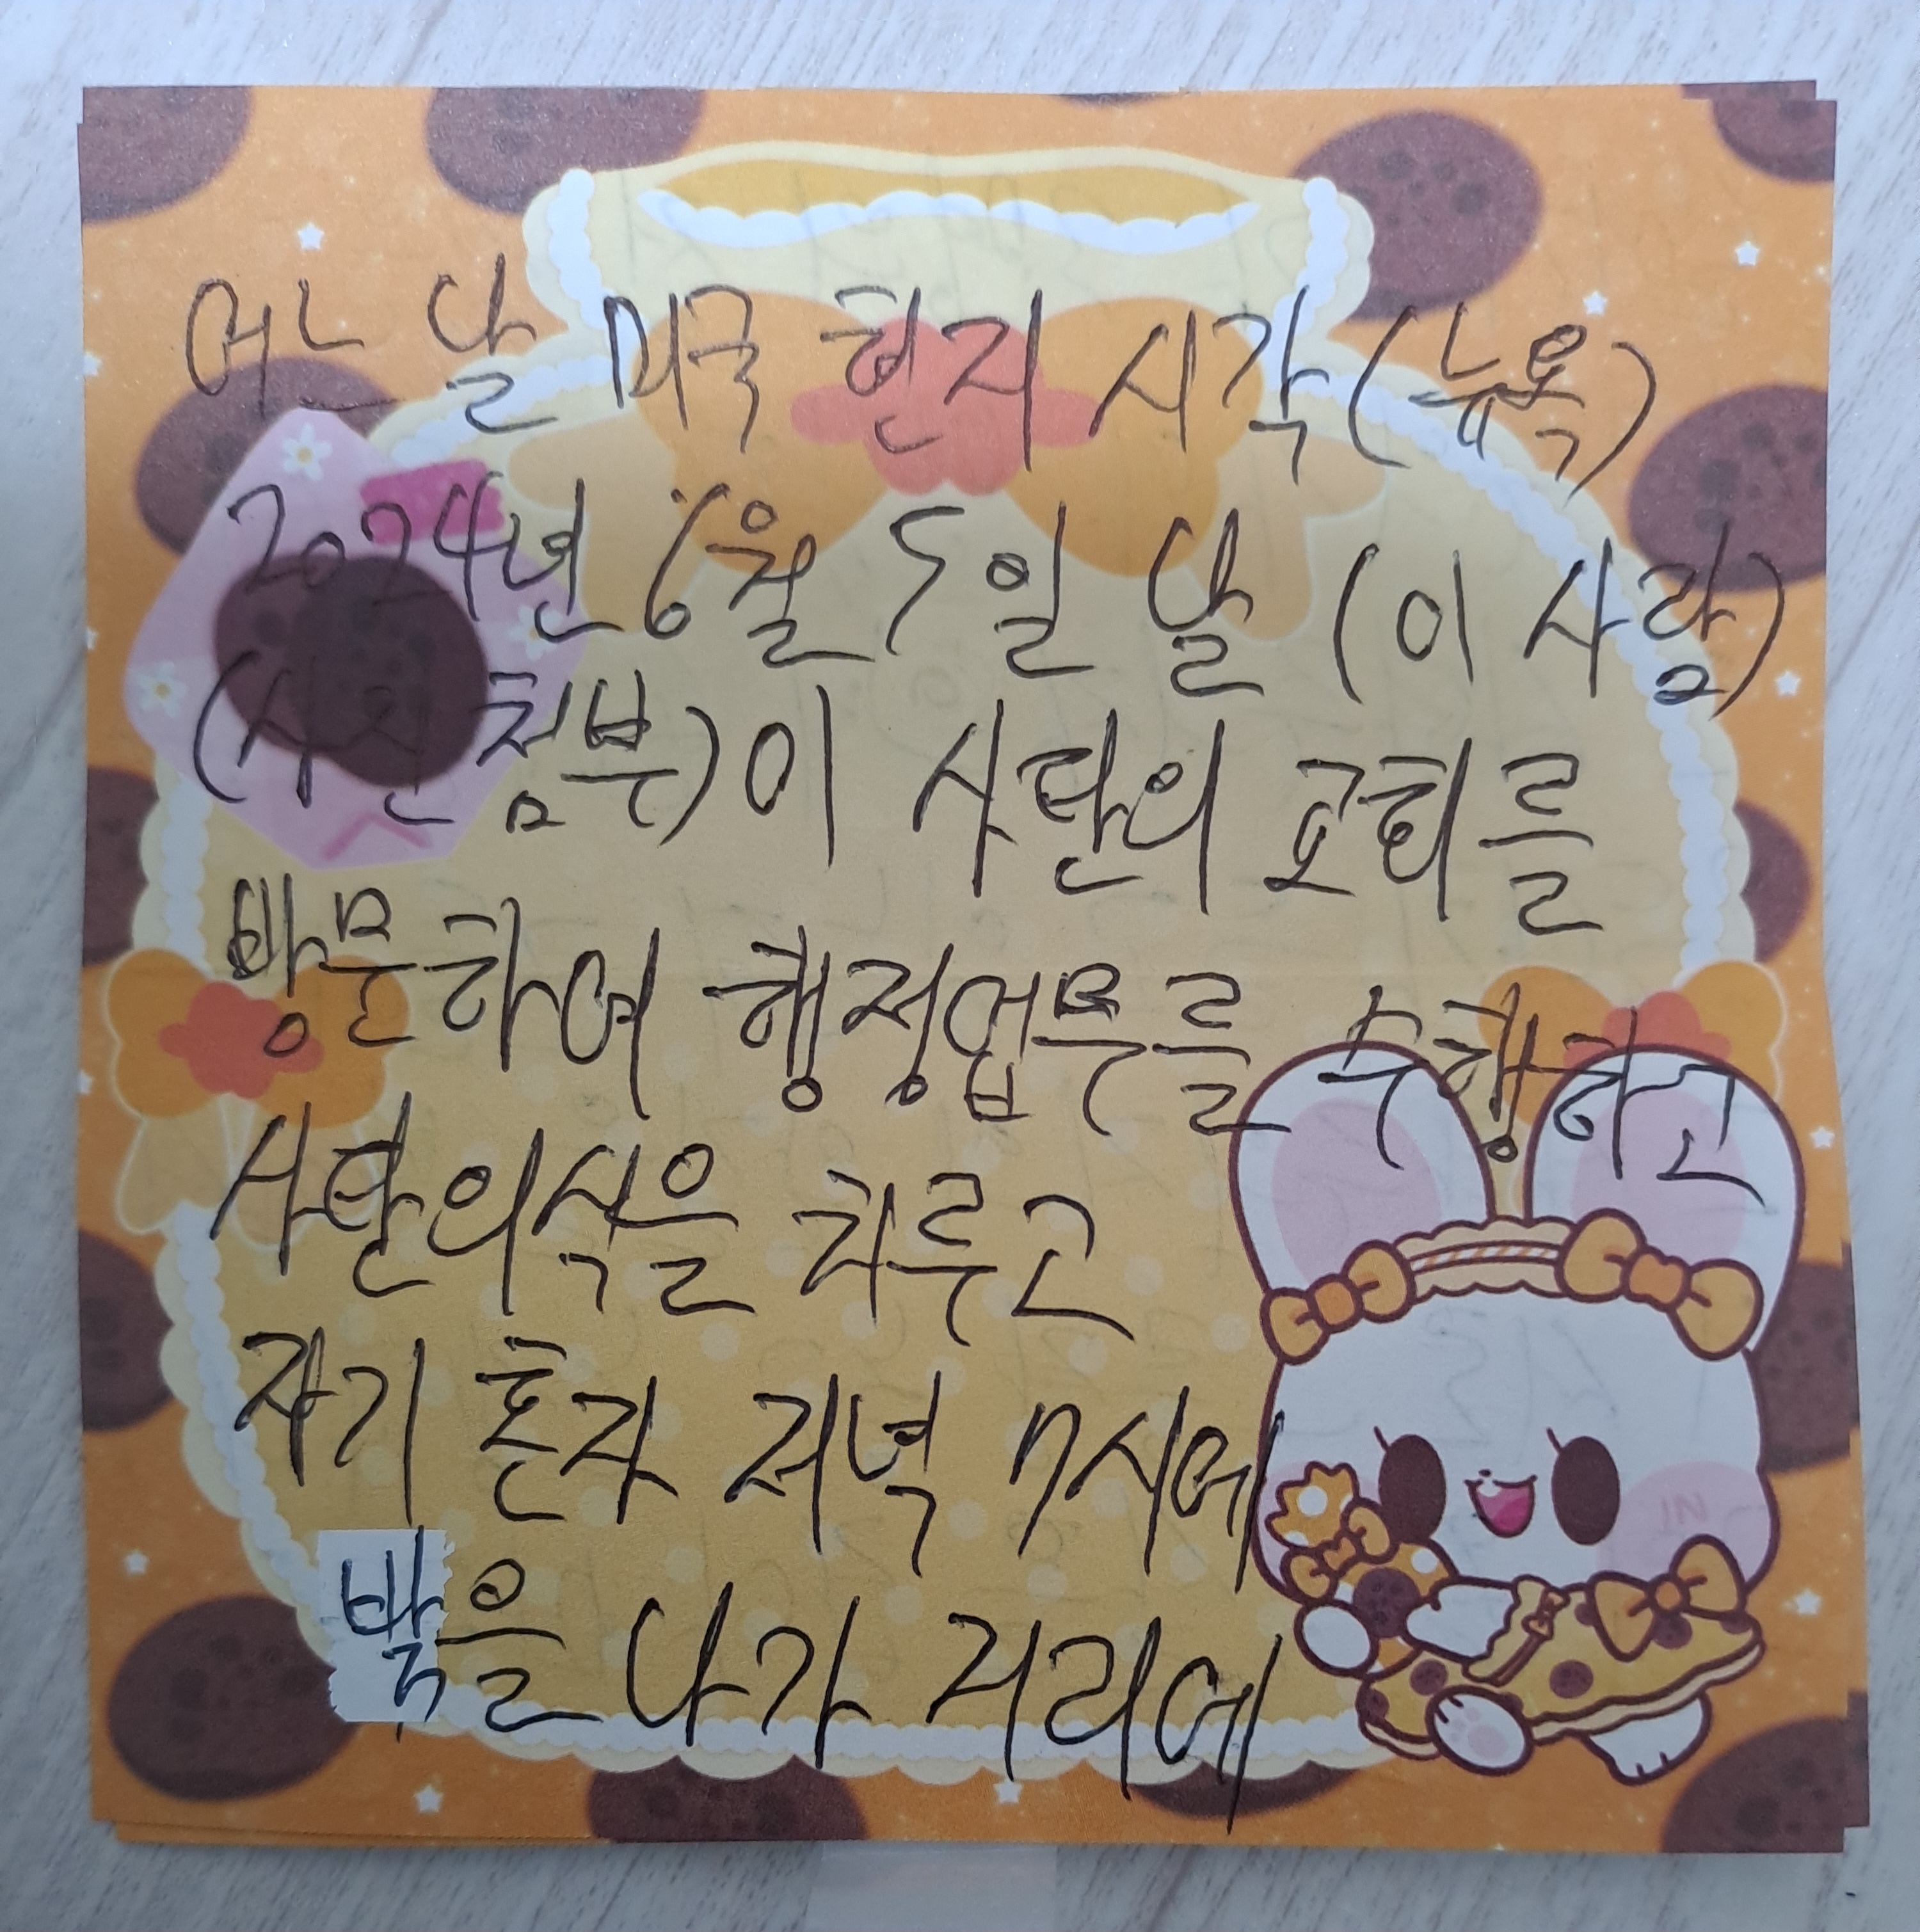 어느 날 미국 현지 시각(뉴욕)
2024년 6월 5일 날 (이 사람)
(사진 첨부)이 사탄의 교회를
방문하여 행정업무를 수행하고
사탄의식을 치루고
자기 혼자 저녁 7시에
밖을 나가 거리에